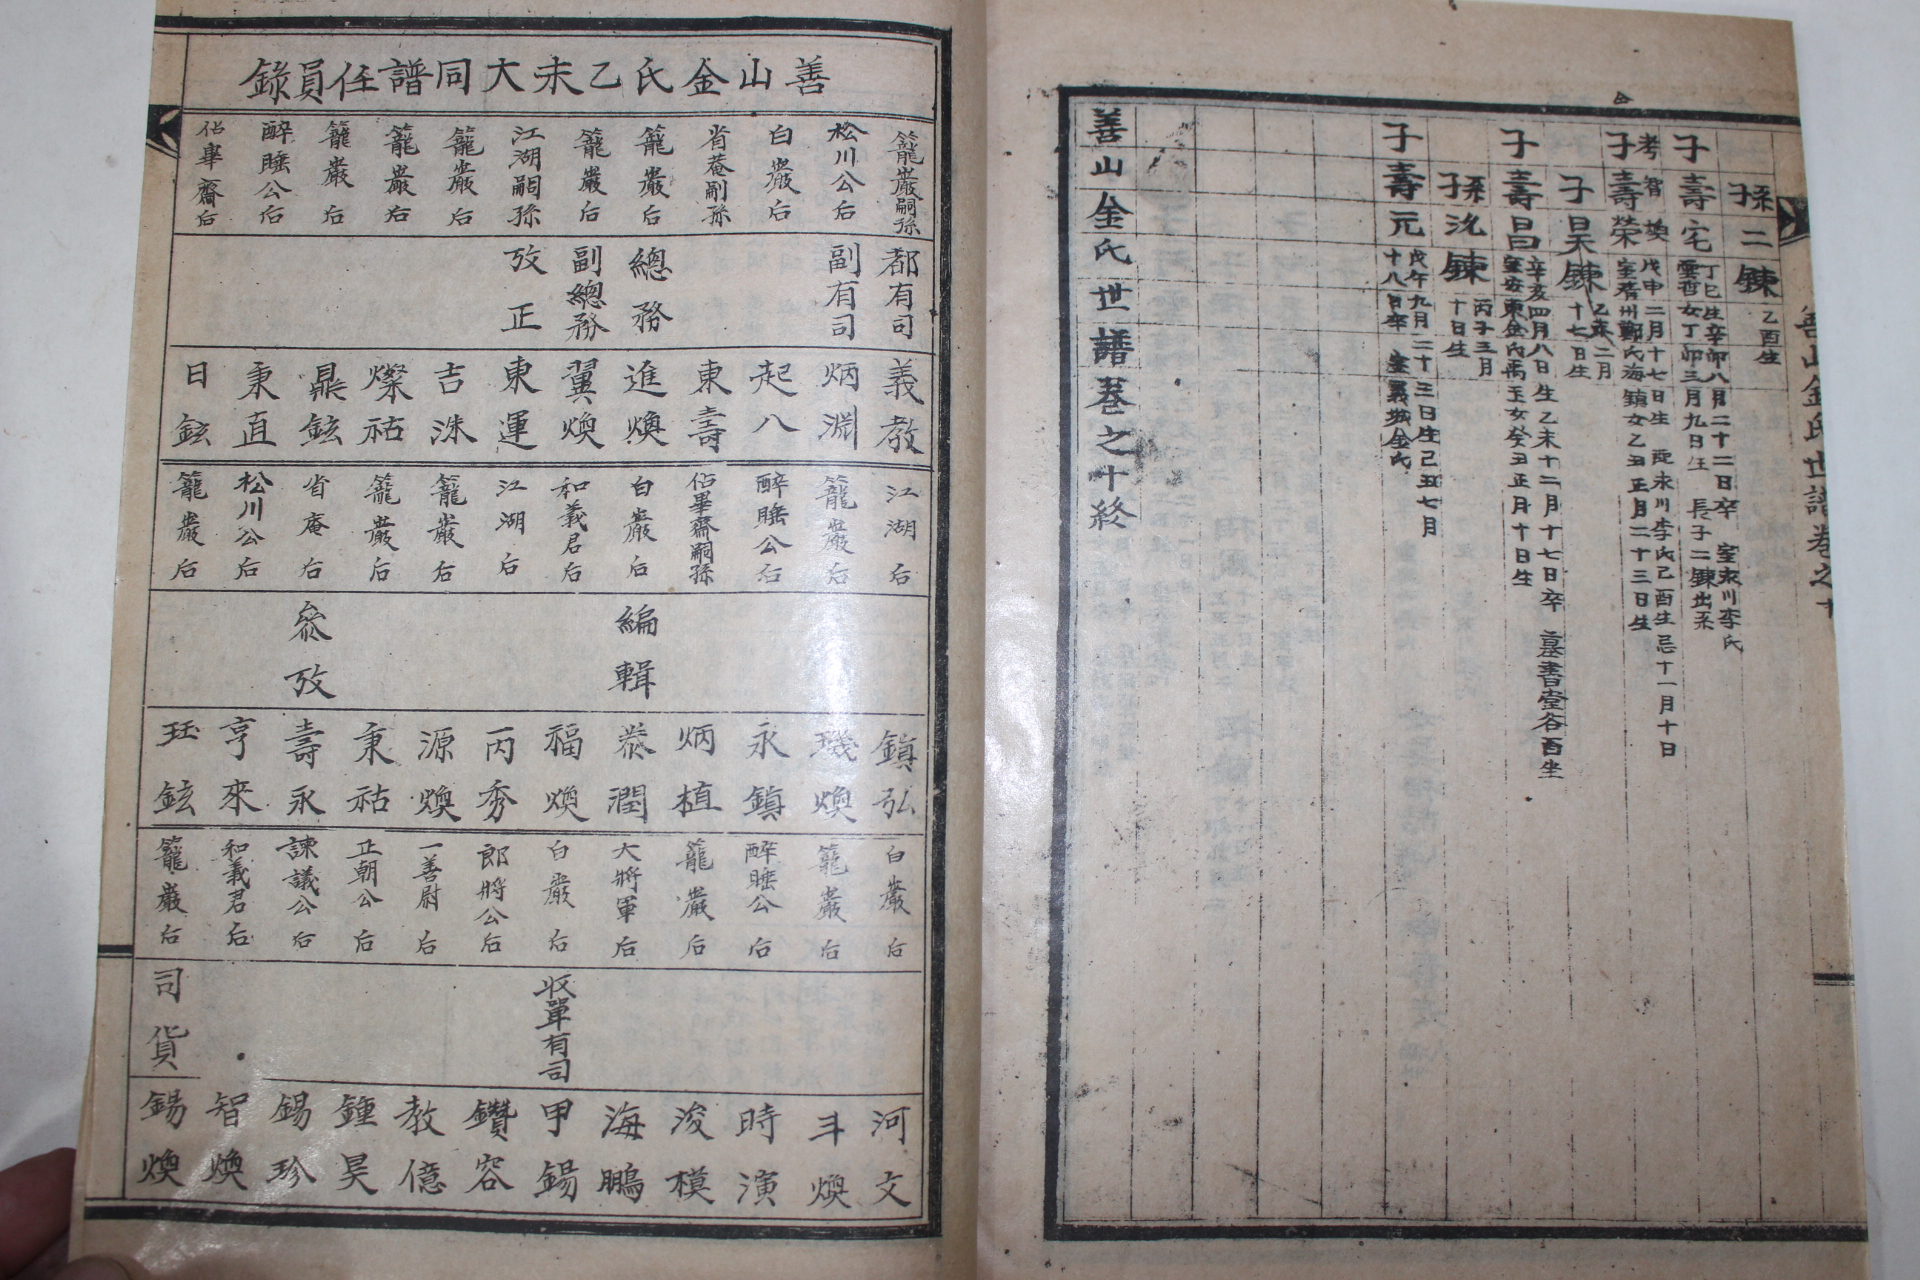 善山金氏世譜卷之十
孫二鍊 乙酉生
子壽宅 丁巳生辛卯八月二十二日卒 室永川李氏
雲哲女丁卯三月九日生 長子二鍊出系
考智煥
子壽榮 戊申二月十七日生 配永川李氏己酉生忌十一月十日
室晋州鄭氏海鎮女乙丑正月二十三日生
子昊鍊 乙亥二月
十七日生
子壽昌 辛亥四月八日生乙未十二月十七日卒 墓書堂谷酉坐
室安東金氏禹玉女癸丑正月十日生
孫洸鍊 丙子三月
十日生
子壽元 戊午九月二十三日生己丑七月
十八日卒 室義城金氏
善山金氏世譜卷之十終
善山金氏乙未大同譜任員錄
籠巖嗣孫 都有司 義教
松川公后 副有司 炳淵
白巖后 起八
省菴嗣孫 東壽
籠巖后 總務 進煥
籠巖后 副總務 翼煥
江湖嗣孫 攷正 東運
籠巖后 吉洙
籠巖后 燦祜
籠巖后 鼎鉉
醉睡公后 秉直
佔畢齋后 日鉉
江湖后 鎮弘
籠巖后 璣煥
醉睡公后 永鎮
佔畢齋嗣孫 炳植
白巖后 編輯 泰潤
和義君后 福煥
江湖后 丙秀
籠巖后 源煥
籠巖后 秉祜
省庵后 參攷 壽永
松川公后 亨來
籠巖后 珏鉉
白巖后 河文
籠巖后 斗煥
醉睡公后 時演
籠巖后 浚模
大將軍后 海鵬
白巖后 收單有司 甲錫
郎將公后 鑽容
一善尉后 教億
正朝公后 鍾昊
諫議公后 錫珍
和義君后 智煥
籠巖后 司貨 錫煥